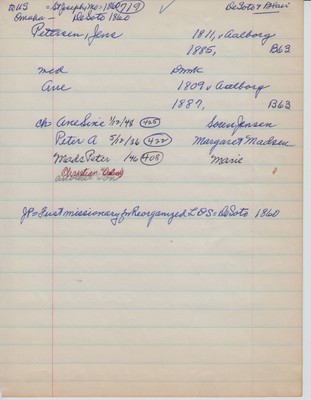 to US = St Joseph, Mo = 1860 719 ✓ DeSoto + Blair
Omaha - DeSoto 1860
Petersen, Jens 1811, v Aalborg
1885, B63
med Dmk
Ane 1809 v Aalborg
1887, B63
ch Ane Sine 1/12/48 425 Soren Jensen
Peter A 5/12/36 422 Margaret Madsen
Mads Peter /46 408 Marie
Christian
another son
JP = First missionary for Reorganized LDS = DeSoto 1860